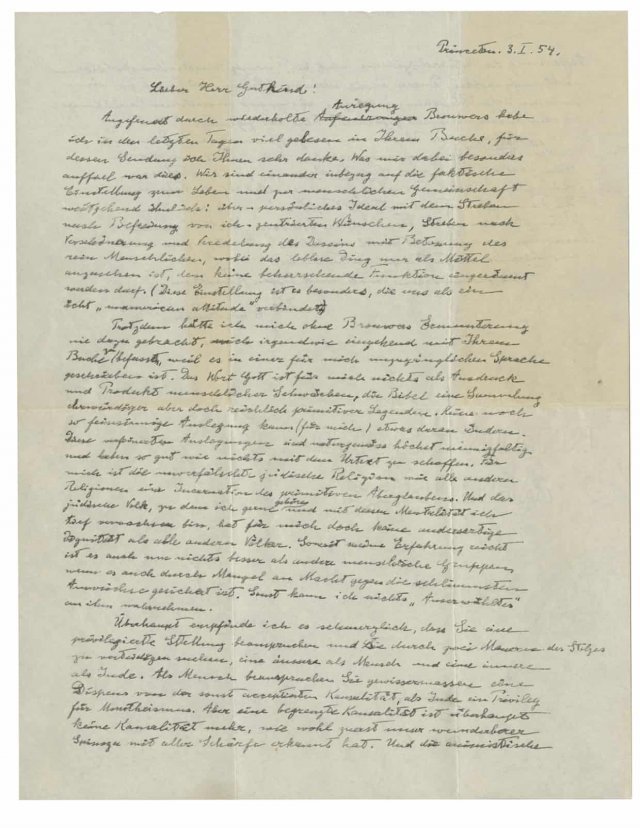 Princeton. 3. I. 54.
Lieber Herr Gutkind!
Anregung
Angefeuert durch wiederholte Brouwers habe
ich in den letzten Tagen viel gelesen in Ihrem Buche, für
dessen Sendung ich Ihnen sehr danke. Was mir dabei besonders
auffiel war dies. Wir sind einander inbezug auf die faktische
Einstellung zum Leben und zur menschlichen Gemeinschaft
weitgehend ähnlich: über-persönliches Ideal mit dem Streben
nach Befreiung von ich-zentrierten Wünschen, Streben nach
Verschönerung und Veredelung des Daseins mit Betonung des
rein Menschlichen, wobei das leblose Ding nur als Mittel
anzusehen ist, dem keine beherrschende Funktion eingeräumt
werden darf. (Diese Einstellung ist es besonders, die uns als ein
echt „unamerican attitude" verbindet)
Trotzdem hätte ich mich ohne Brouwers Ermunterung
nie dazu gebracht, mich irgendwie eingehend mit Ihrem
Buche zu befassen, weil es in einer für mich unzugänglichen Sprache
geschrieben ist. Das Wort Gott ist für mich nichts als Ausdruck
und Produkt menschlicher Schwächen, die Bibel eine Sammlung
ehrwürdiger aber doch reichlich primitiver Legenden. Keine noch
so feinsinnige Auslegung kann (für mich) etwas daran ändern.
Diese verfeinerten Auslegungen sind naturgemäss höchst mannigfaltig
und haben so gut wie nichts mit dem Urtext zu schaffen. Für
mich ist die unverfälschte jüdische Religion wie alle anderen
Religionen eine Incarnation des primitiven Aberglaubens. Und das
jüdische Volk, zu dem ich gerne gehöre und mit dessen Mentalität ich
tief verwachsen bin, hat für mich doch keine andersartige
Dignität als alle anderen Völker. Soweit meine Erfahrung reicht
ist es auch um nichts besser als andere menschliche Gruppen
wenn es auch durch Mangel an Macht gegen die schlimmsten
Auswüchse gesichert ist. Sonst kann ich nichts „Auserwähltes"
an ihm wahrnehmen.
Überhaupt empfinde ich es schmerzlich, dass Sie eine
privilegierte Stellung beanspruchen und sie durch zwei Mauern des Stolzes
zu verteidigen suchen, eine äussere als Mensch und eine innere
als Jude. Als Mensch beanspruchen Sie gewissermassen eine
Dispens von der sonst acceptierten Kausalität, als Jude ein Privileg
für Monotheismus. Aber eine begrenzte Kausalität ist überhaupt
keine Kausalität mehr, wie wohl zuerst unser wunderbarer
Spinoza mit aller Schärfe erkannt hat. Und die animistische